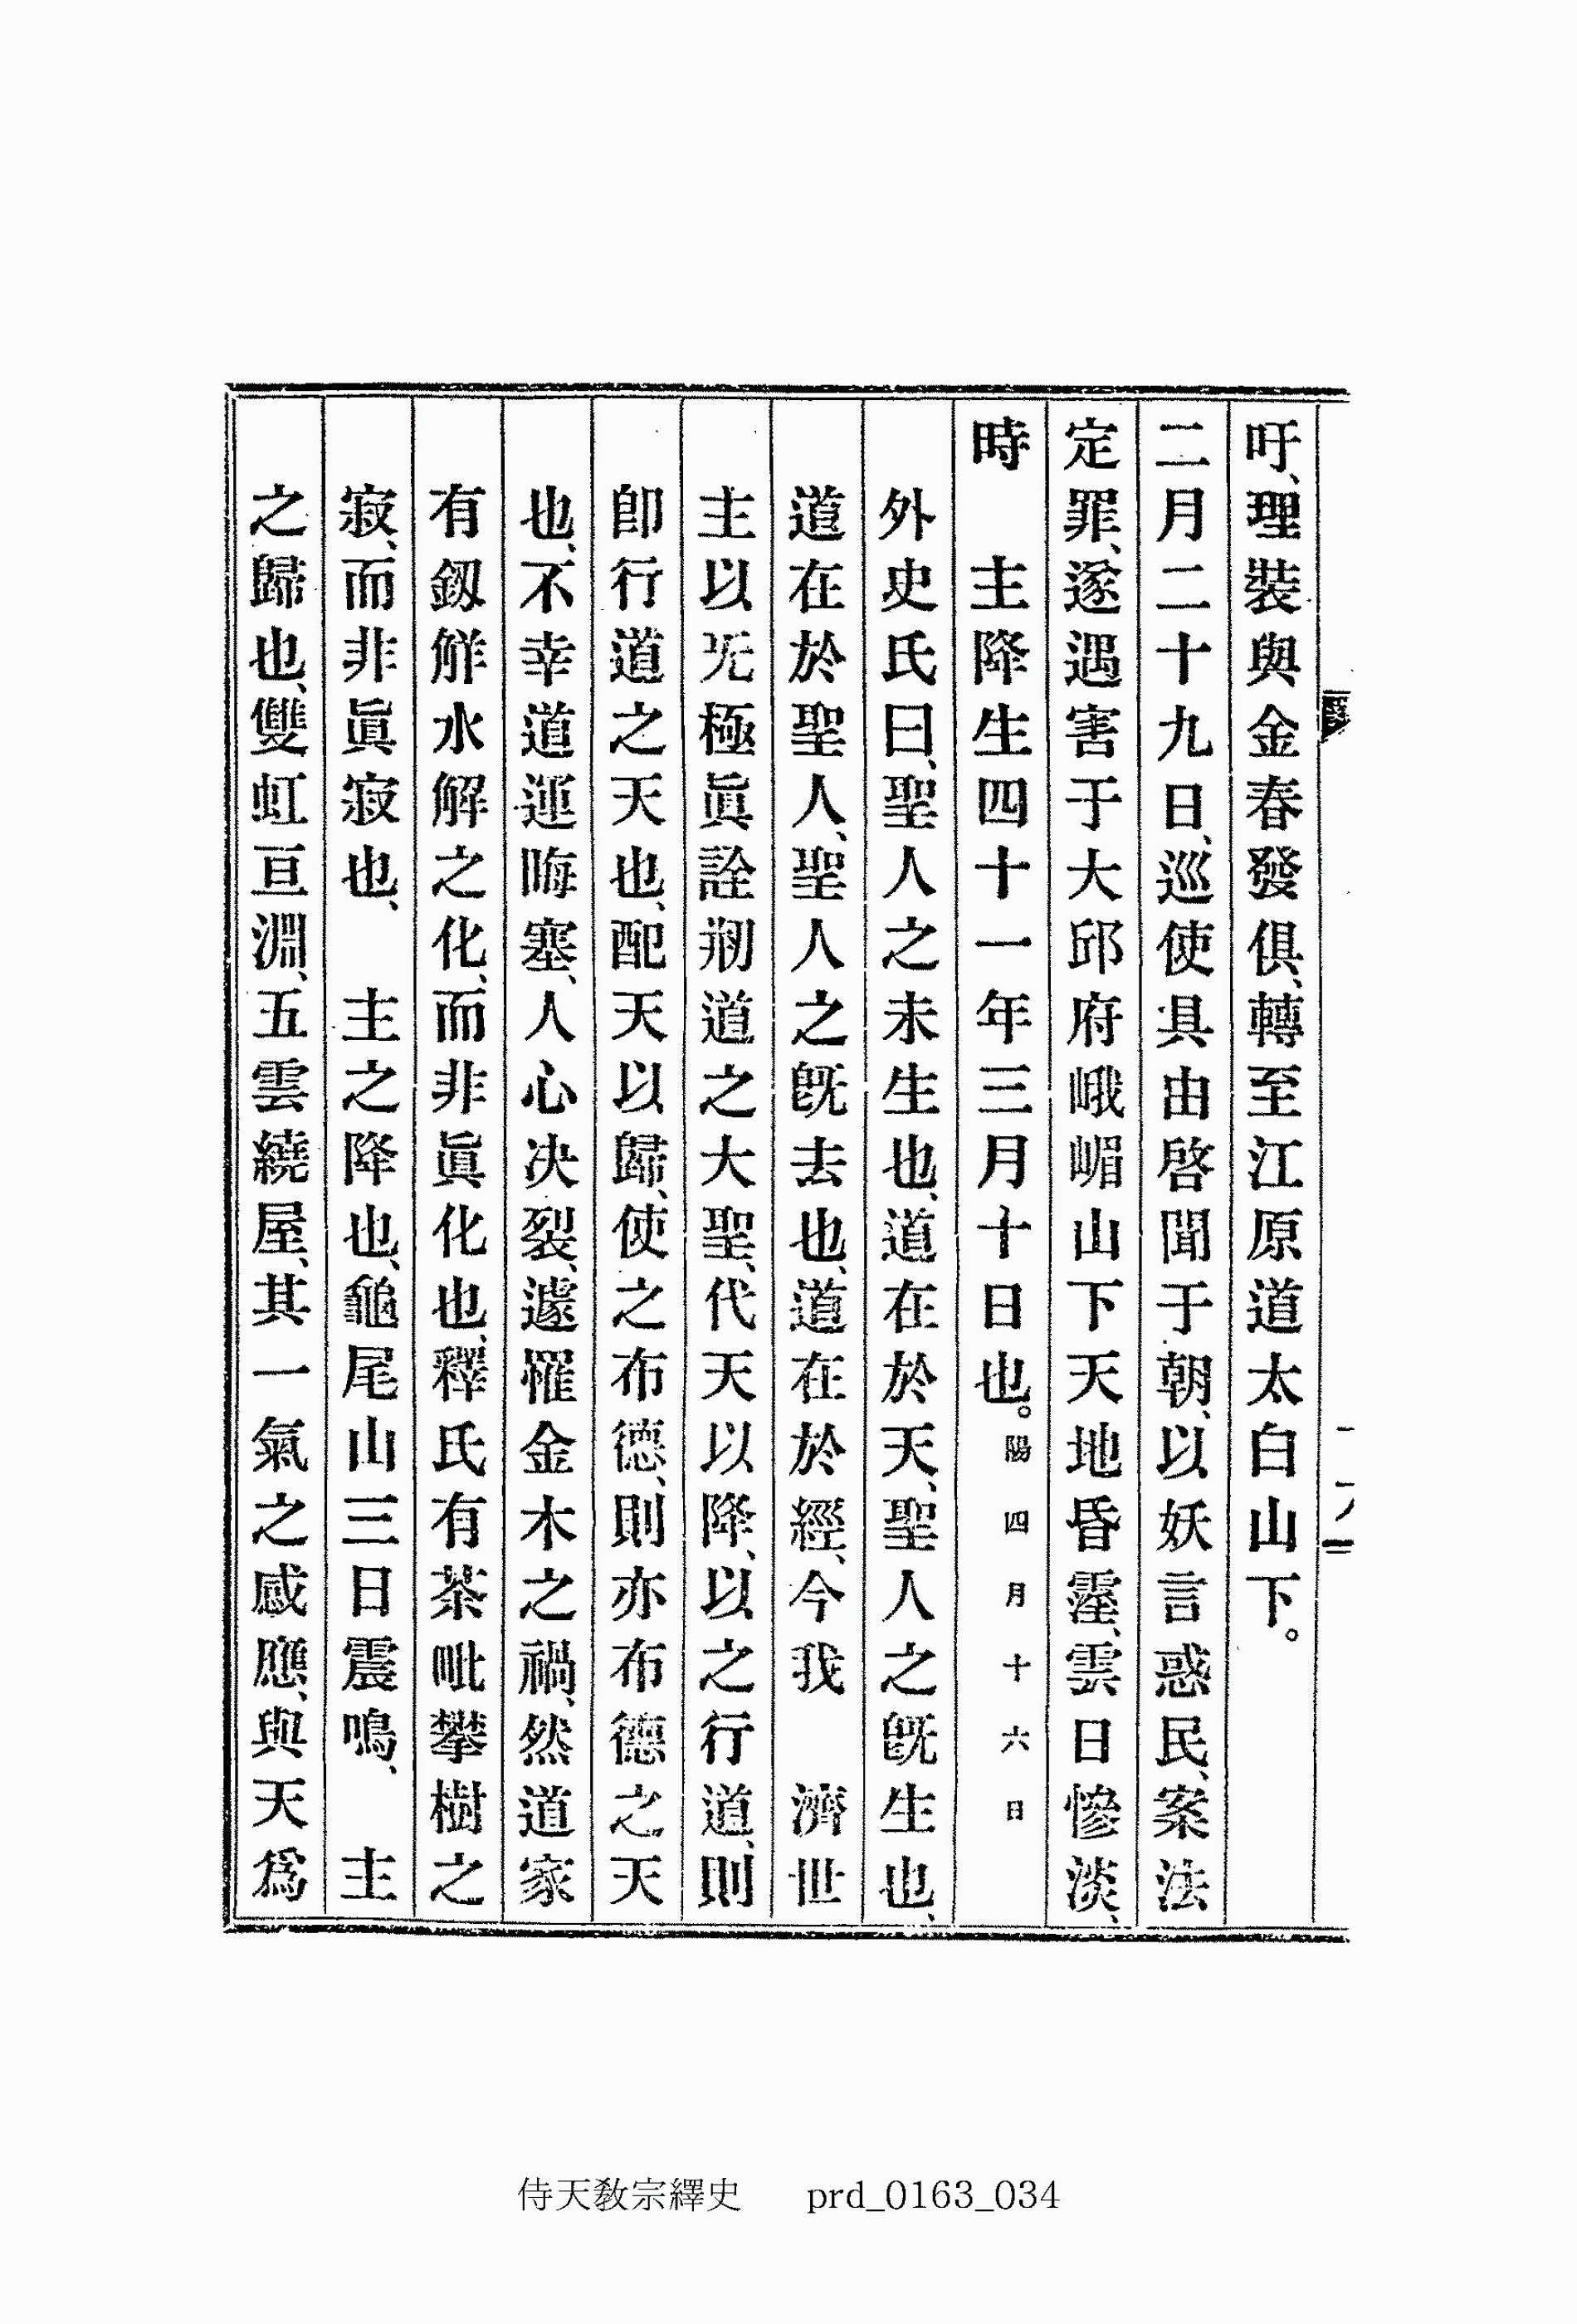 吁、理裝與金春發俱、轉至江原道太白山下。
二月二十九日、巡使具由啓聞于朝、以妖言惑民、案法
定罪、遂遇害于大邱府峨嵋山下天地昏霾、雲日慘淡、
時　主降生四十一年三月十日也。陽四月十六日
外史氏曰、聖人之未生也、道在於天、聖人之旣生也、
道在於聖人、聖人之旣去也、道在於經、今我　濟世
主以无極眞詮刱道之大聖、代天以降、以之行道、則
卽行道之天也、配天以歸、使之布德、則亦布德之天
也、不幸道運晦塞、人心决裂、遽罹金木之禍、然道家
有釼觧水解之化、而非眞化也、釋氏有茶毗攀樹之
寂、而非眞寂也、　主之降也、龜尾山三日震鳴、　主
之歸也、雙虹亘淵、五雲繞屋、其一氣之感應、與天爲
侍天敎宗繹史　prd_0163_034